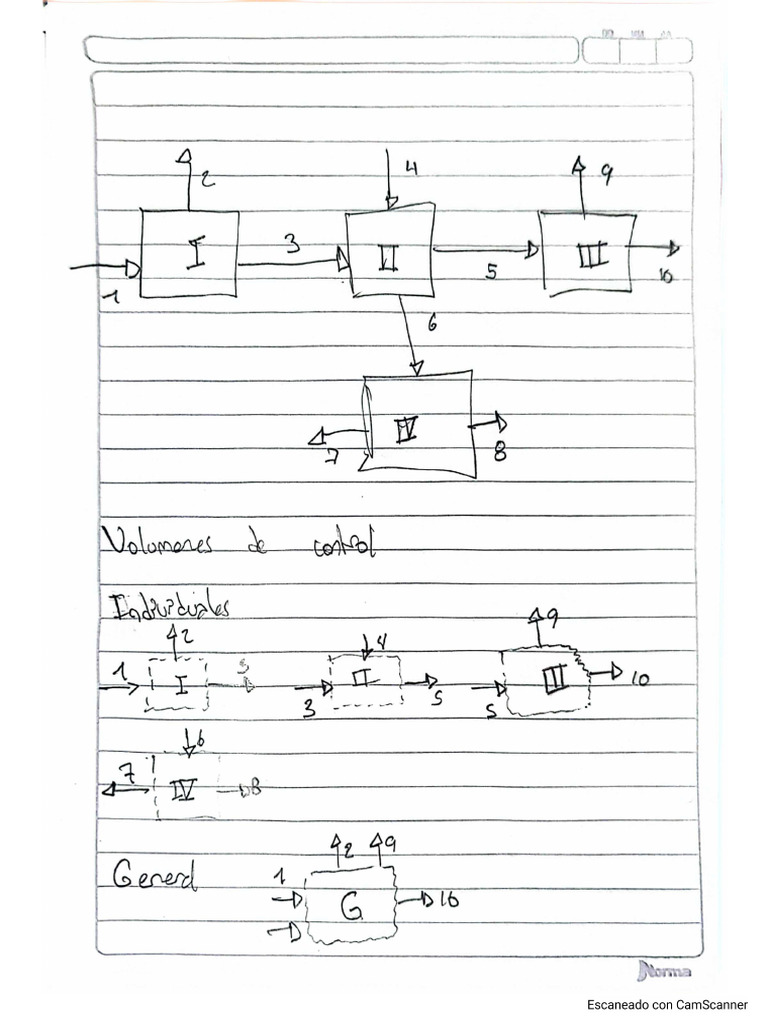 DD MM AA
2 4 9
I 3 II 5 III
1 10
6
IV
7 8
Volumenes de control
Individuales
2 4 9
1 I 3 II III 10
3 5 5
6
7 IV 8
2 9
General 1
G 10
Norma
Escaneado con CamScanner